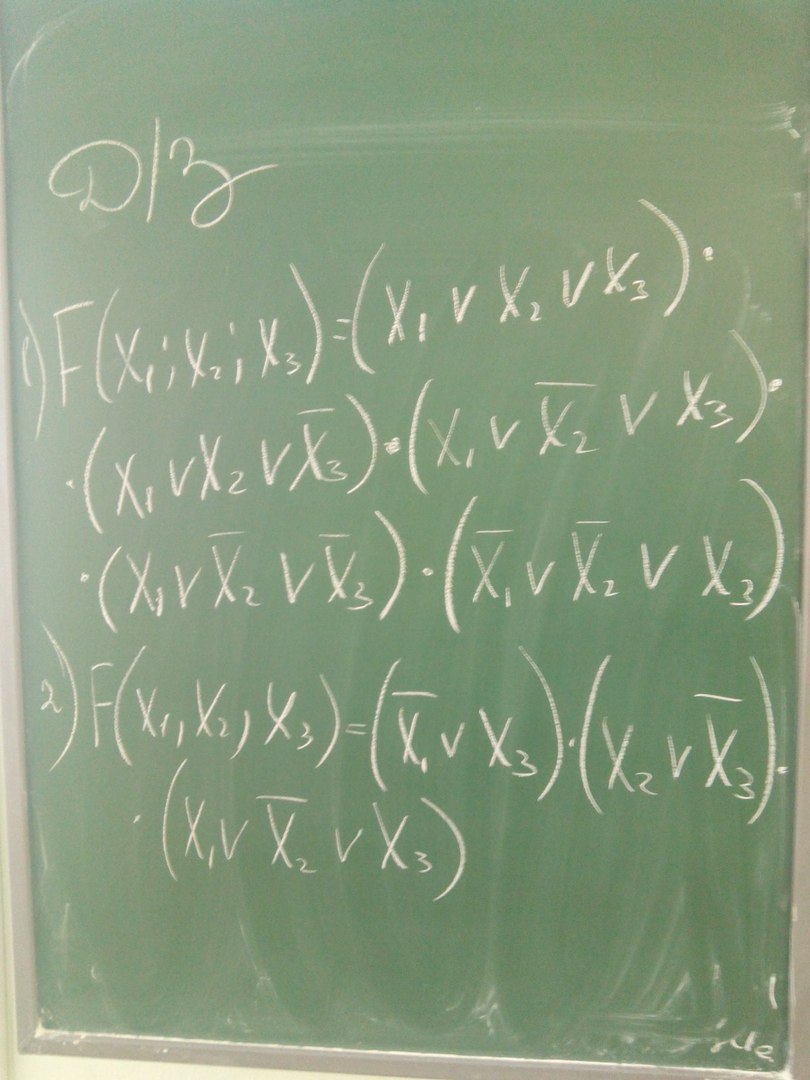 Д/З
1) F(X₁; X₂; X₃) = (X₁ ∨ X₂ ∨ X₃) ·
· (X₁ ∨ X₂ ∨ X̅₃) · (X₁ ∨ X̅₂ ∨ X₃) ·
· (X₁ ∨ X̅₂ ∨ X̅₃) · (X̅₁ ∨ X̅₂ ∨ X₃)
2) F(X₁, X₂, X₃) = (X̅₁ ∨ X₃) · (X₂ ∨ X̅₃) ·
· (X₁ ∨ X̅₂ ∨ X₃)